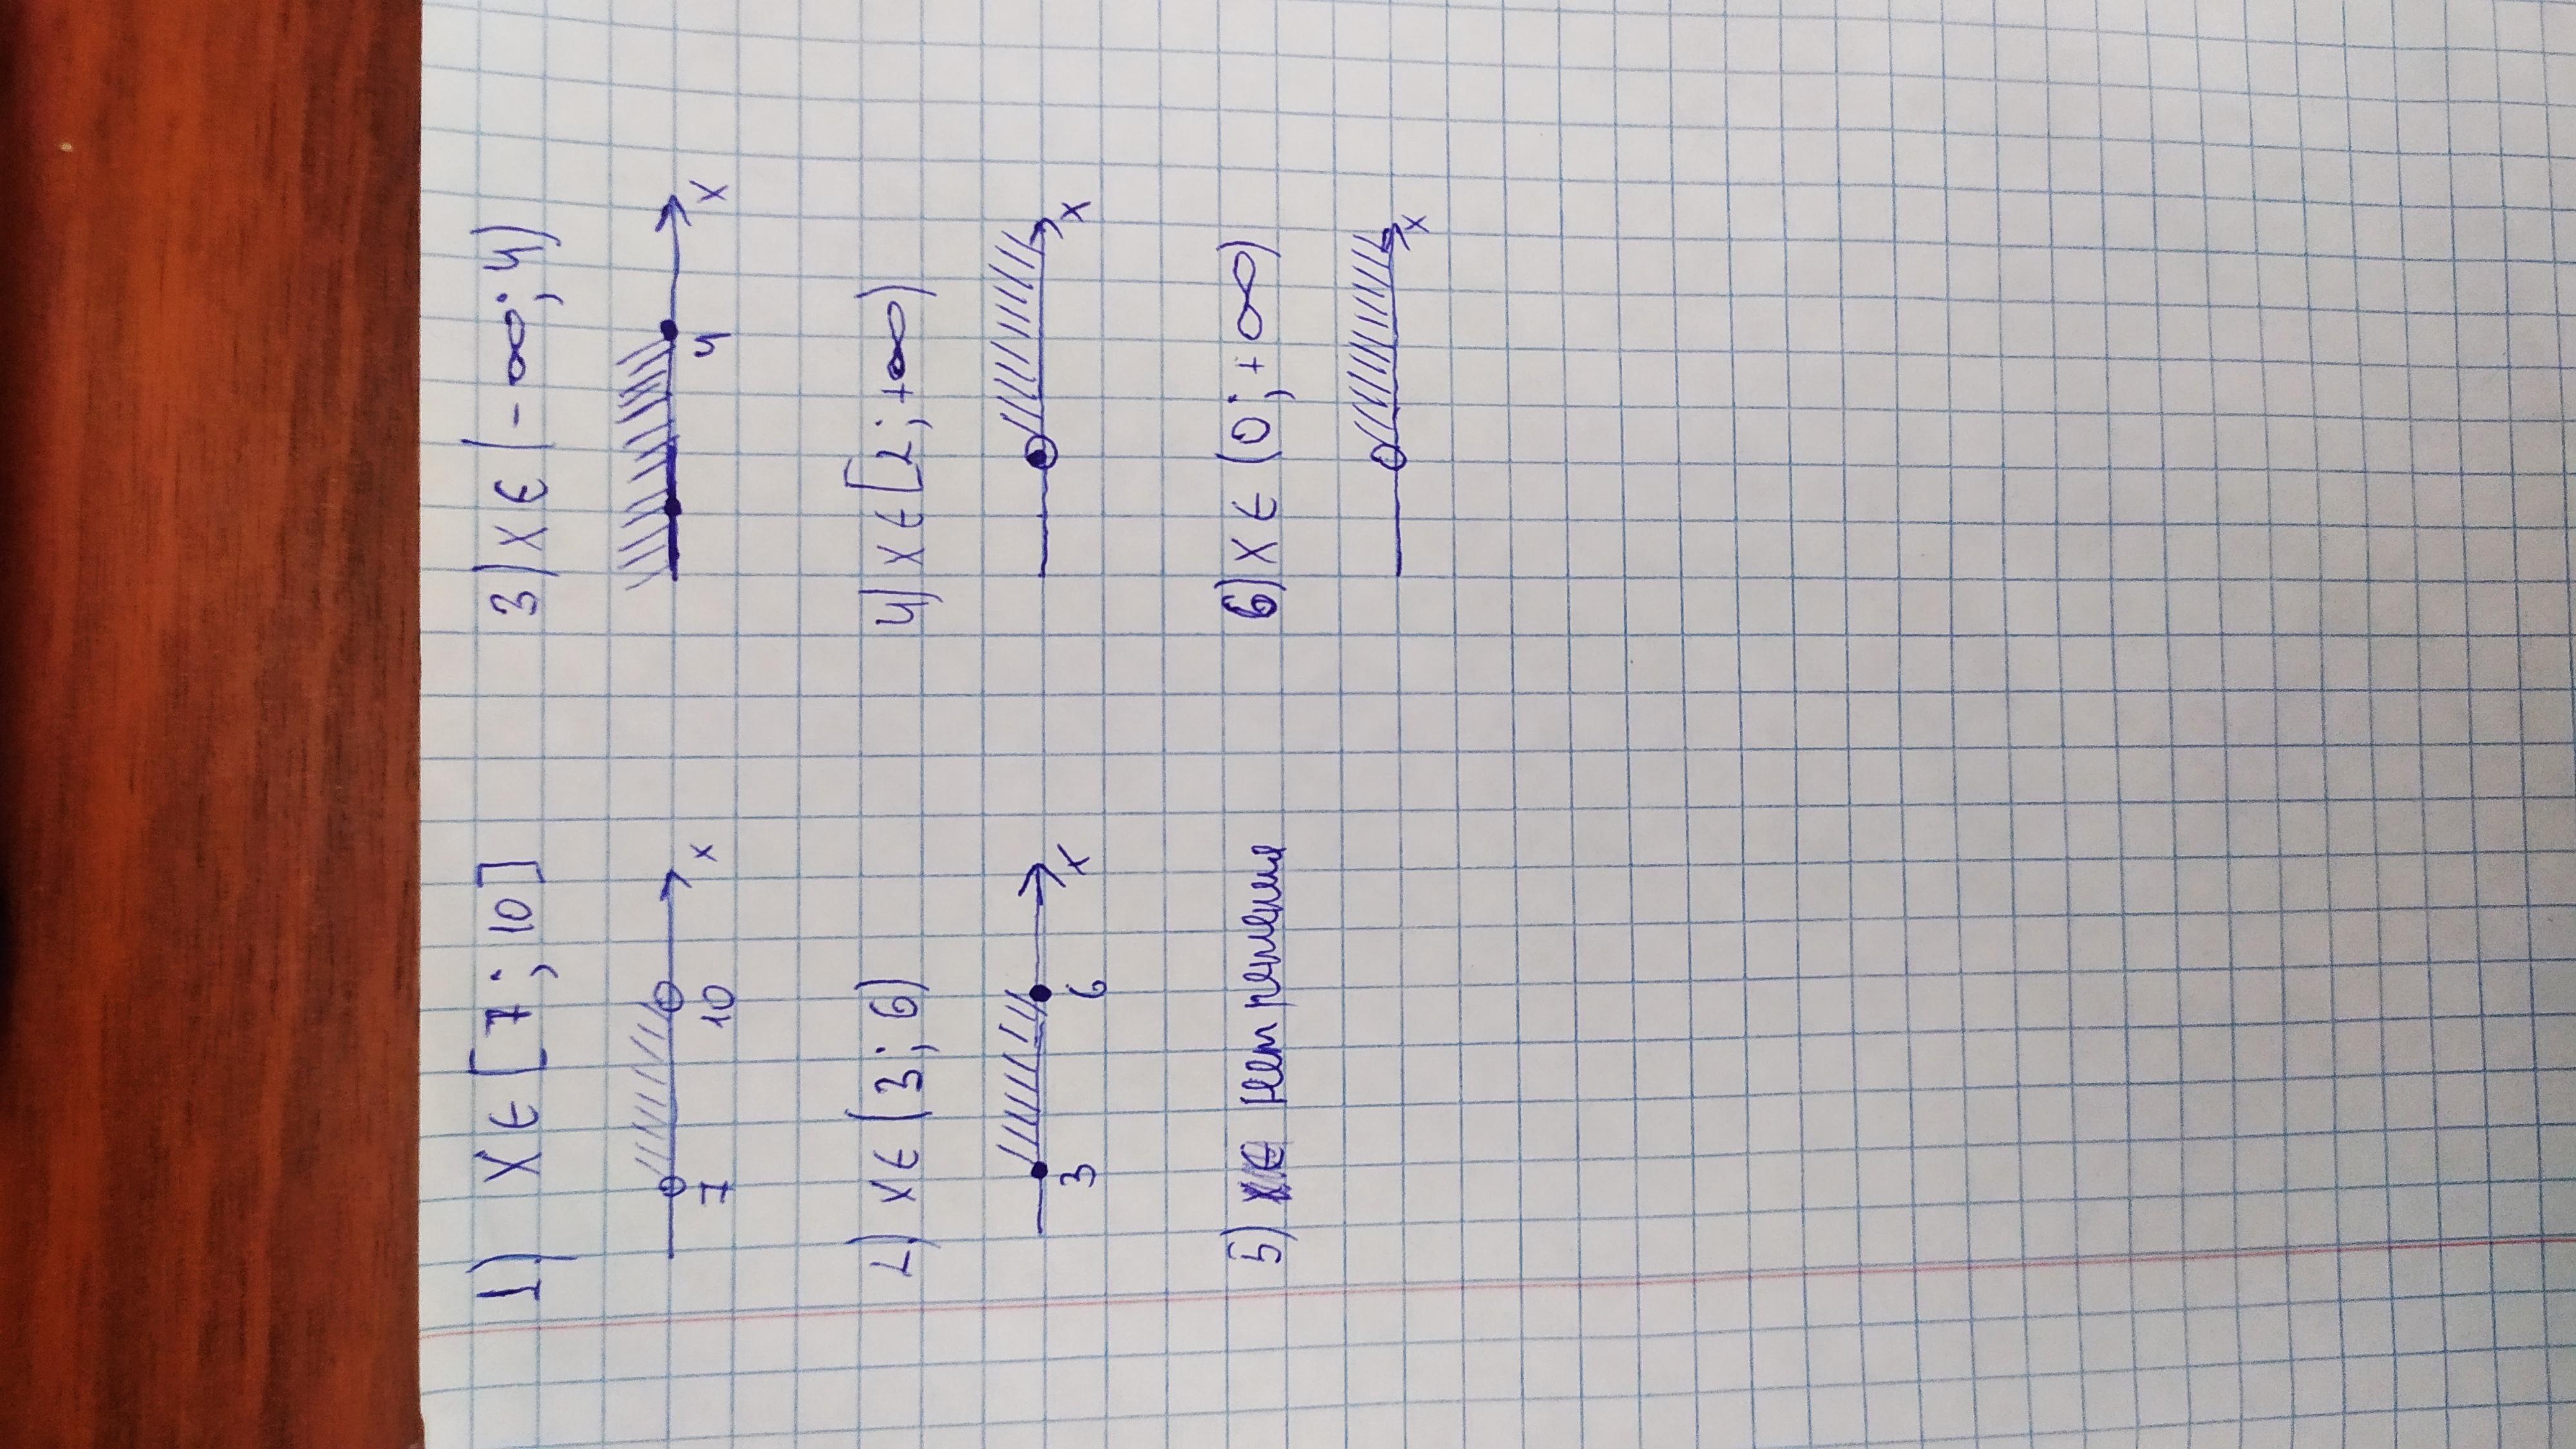 1) x ∈ [7; 10]
7 10 x
2) x ∈ (3; 6)
3 6 x
5) нет решения
3) x ∈ (-∞; 4)
4 x
4) x ∈ [2; +∞)
x
6) x ∈ (0; +∞)
x